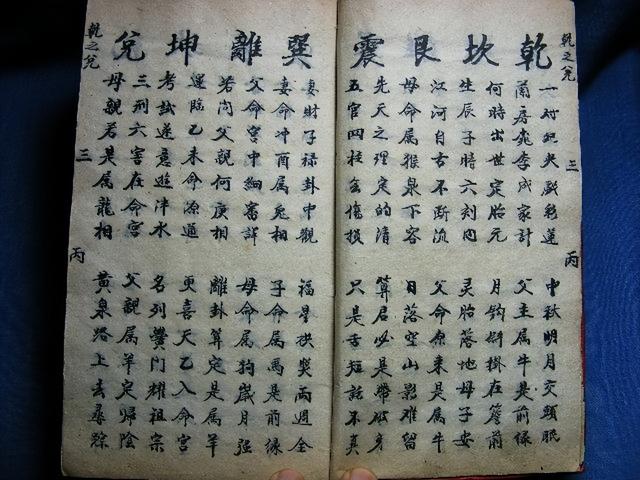 乾之兌
三
丙
乾 坎 艮 震
一对
彩蓮
中秋明月交頸眠
兩房桃李成家計
父主属牛是前缘
何時出世定胎元
月鈎斜掛在簷前
生辰子時六刻内
灵胎落地母子安
江河自古不断流
父命原来是属牛
母命属猴泉下容
日落空山影难留
先天之理定的清
算君必是帶破身
五官四柱金傷損
只是舌短話不真
巽 離 坤 兌
妻財子禄卦中觀
福星拱照兩週全
妻命冲酉属兔相
子命属馬是前缘
父命宫中細審詳
母命属狗歲月强
若问父親何庚相
離卦算定是属羊
運臨乙未命源通
更喜天乙入命宫
考試遂意遊泮水
名列黌門耀祖宗
三刑六害在命宫
父親属羊定歸陰
母親若是属龍相
黄泉路上去尋踪
乾之兌
三
丙